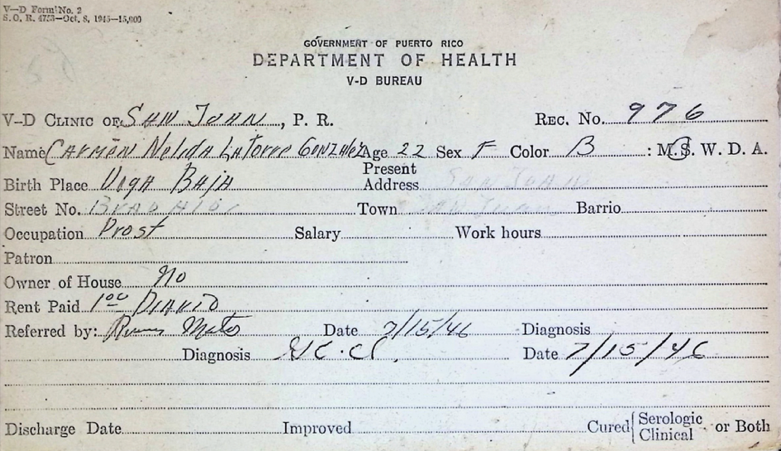 V—D Form No. 2
S. O. R. 4753—Oct. 8, 1945—15,000
GOVERNMENT OF PUERTO RICO
DEPARTMENT OF HEALTH
V-D BUREAU
V—D CLINIC OF SAN JUAN, P. R. REC. No. 976
Name Carmen Nelida LaTorre Gonzalez Age 22 Sex F Color B : M. S. W. D. A.
Birth Place Vega BAJA Present Address SAN JUAN
Street No. Town San Juan Barrio
Occupation Prost Salary Work hours
Patron
Owner of House No
Rent Paid 1.00 DIARIO
Referred by: Date 7/15/46 Diagnosis
Diagnosis Date 7/15/46
Discharge Date Improved Cured { Serologic Clinical or Both